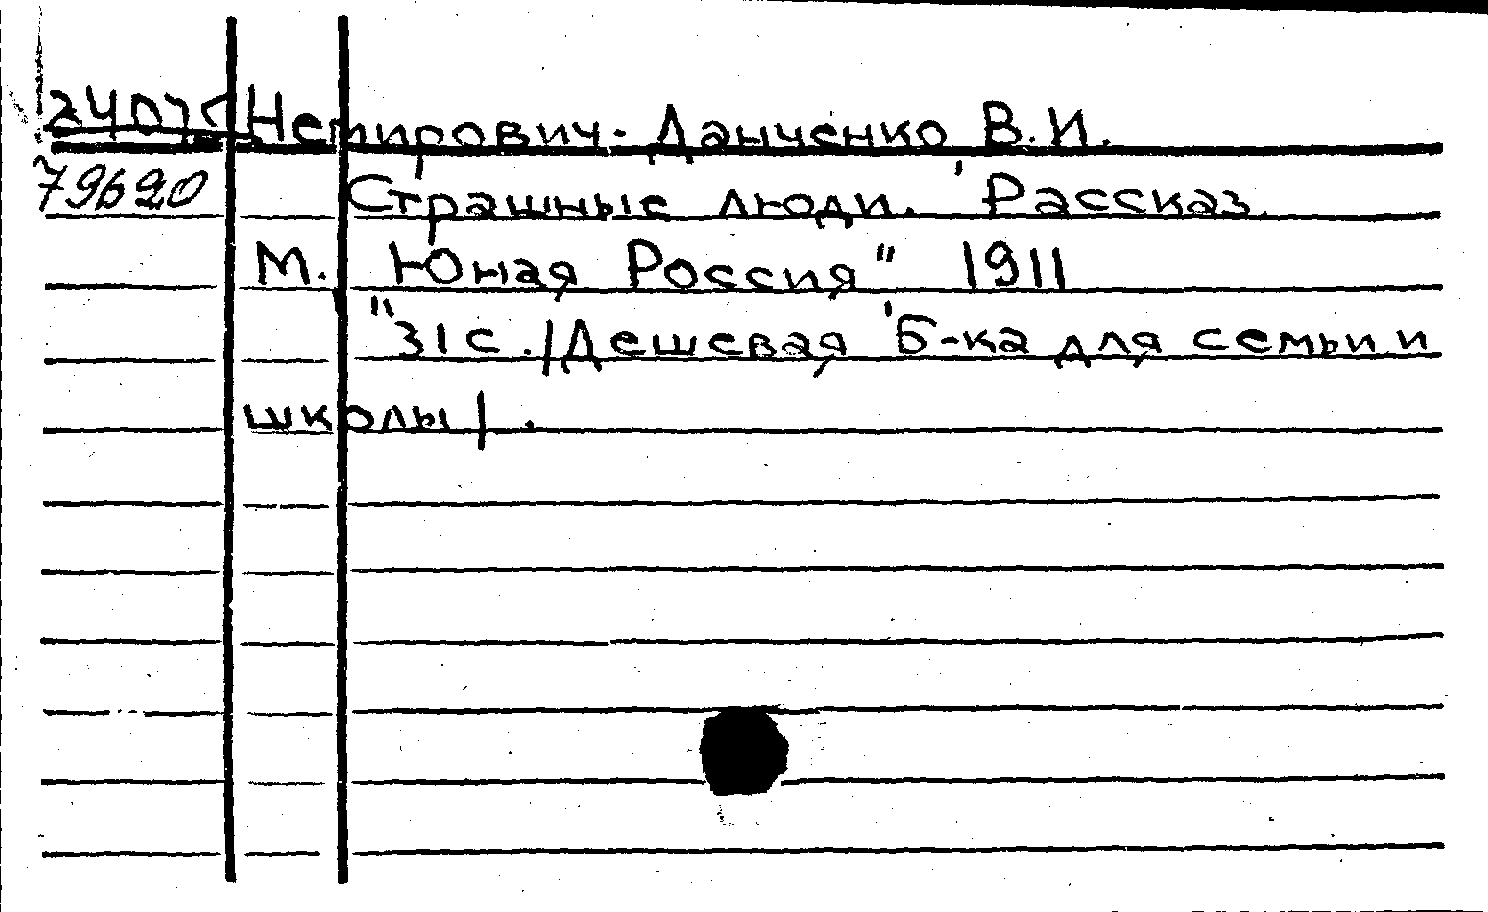 Немирович-Данченко, В.И.
79620 Страшные люди. Рассказ.
М. "Юная Россия" 1911
31с. /Дешевая б-ка для семьи и
школы/.